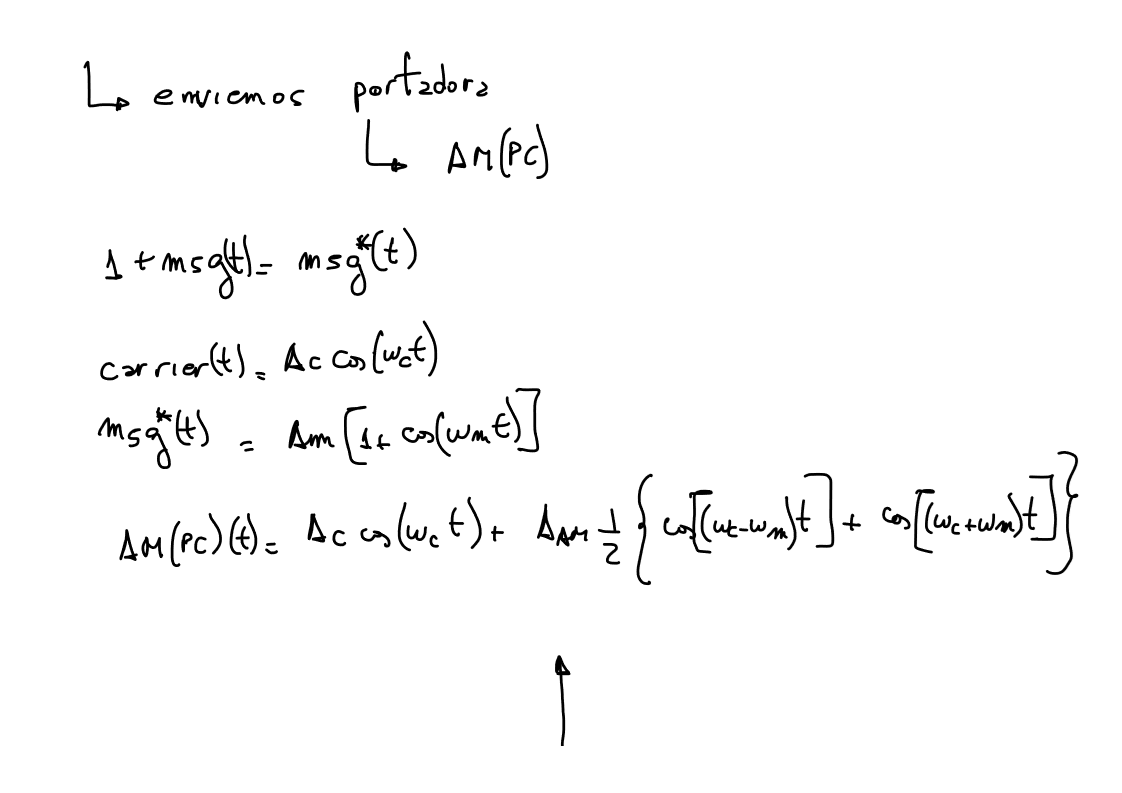 ↳ enviemos portadora
↳ AM(PC)
1 + msg(t) = msg*(t)
carrier(t) = Ac cos(ωct)
msg*(t) = Am [1 + cos(ωmt)]
AM(PC)(t) = Ac cos(ωc t) + AAM 1/2 { cos[(ωc-ωm)t] + cos[(ωc+ωm)t] }